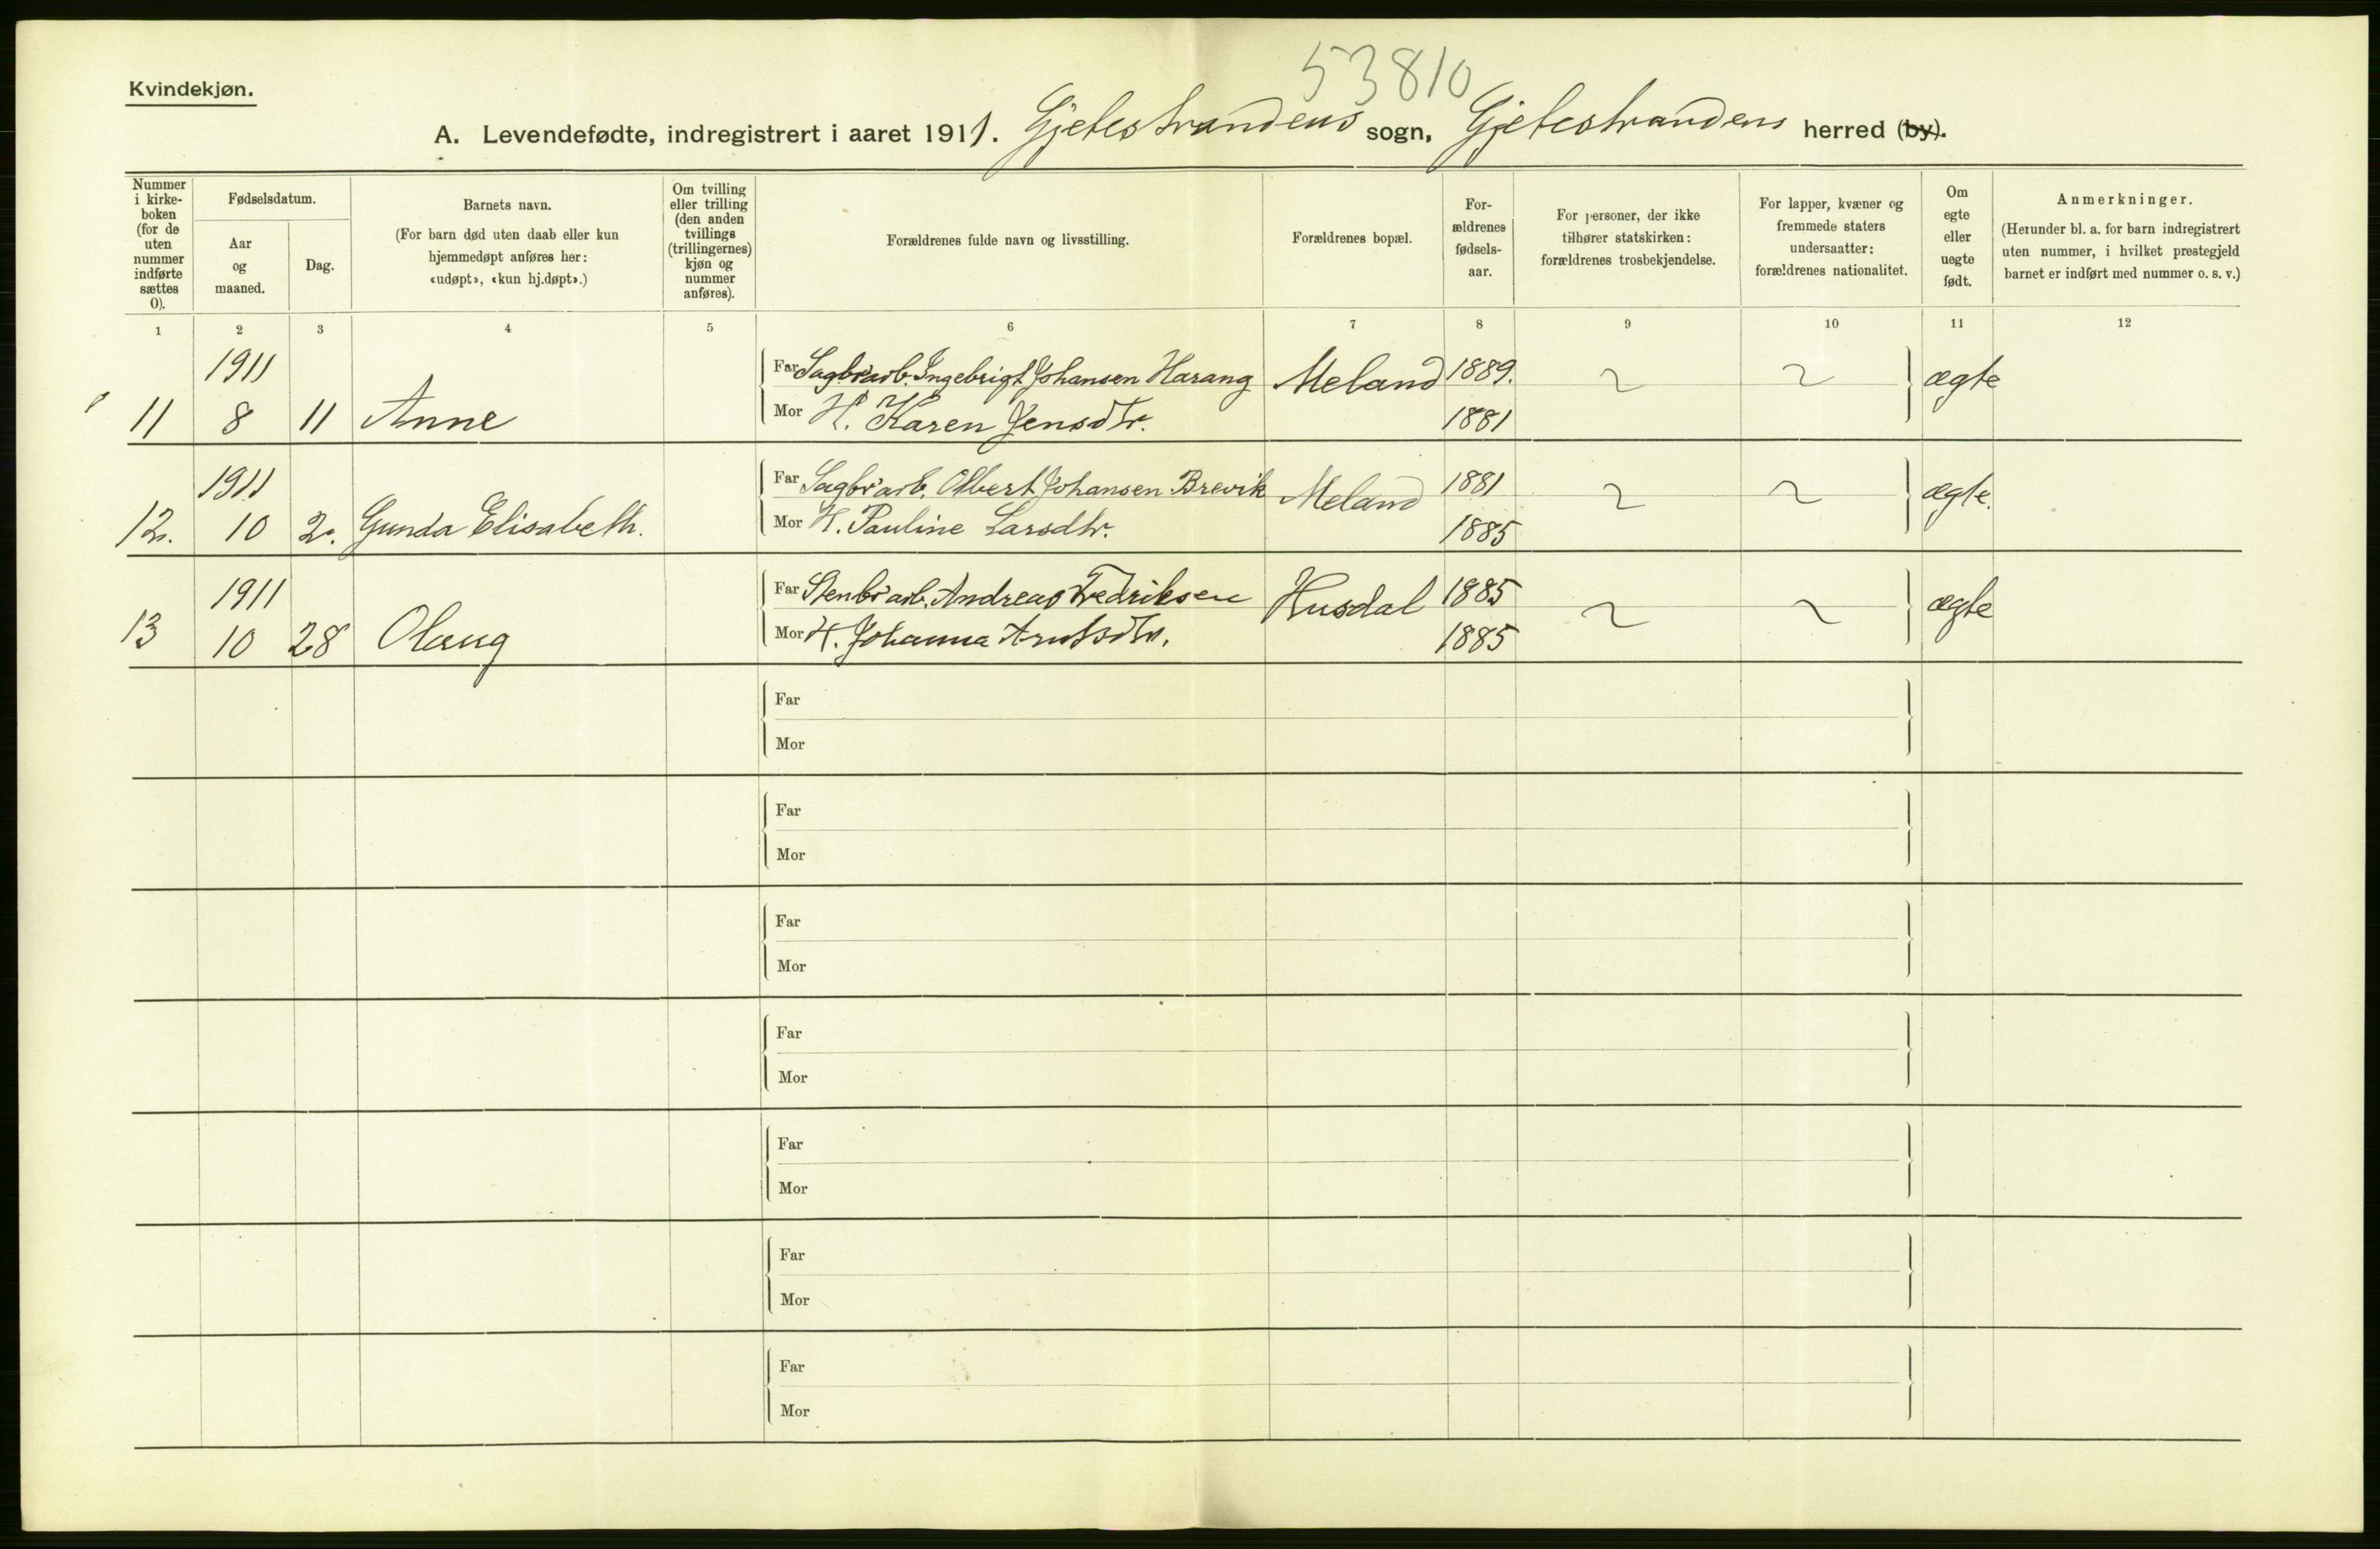 53810
Kvindekjøn.
A. Levendefødte, indregistrert i aaret 1911. Gjetestrandens sogn, Gjetestrandens herred (by).
Nummer i kirke-boken (for de uten nummer indførte sættes 0).
Fødselsdatum.
Aar og maaned.
Dag.
Barnets navn.
(For barn død uten daab eller kun hjemmedøpt anføres her: «udøpt», «kun hj.døpt».)
Om tvilling eller trilling (den anden tvillings (trillingernes) kjøn og nummer anføres).
Forældrenes fulde navn og livsstilling.
Forældrenes bopæl.
For-ældrenes fødsels-aar.
For personer, der ikke tilhører statskirken: forældrenes trosbekjendelse.
For lapper, kvæner og fremmede staters undersaatter: forældrenes nationalitet.
Om egte eller uegte født.
Anmerkninger.
(Herunder bl. a. for barn indregistrert uten nummer, i hvilket prestegjeld barnet er indført med nummer o. s. v.)
1 2 3 4 5 6 7 8 9 10 11 12
1911 Far Sagbrarb. Ingebrigt Johansen Harang Meland 1889. ægte
11 8 11 Anne Mor H. Karen Jensdtr. 1881
1911 Far Sagbrarb. Albert Johansen Brevik Meland 1881 ægte.
12. 10 2. Gunda Elisabeth. Mor H. Pauline Larsdtr. 1885
1911 Far Stenbrarb. Andreas Fredriksen Husdal 1885 ægte
13 10 28 Olaug Mor H. Johanna Arntsdtr. 1885
Far
Mor
Far
Mor
Far
Mor
Far
Mor
Far
Mor
Far
Mor
Far
Mor